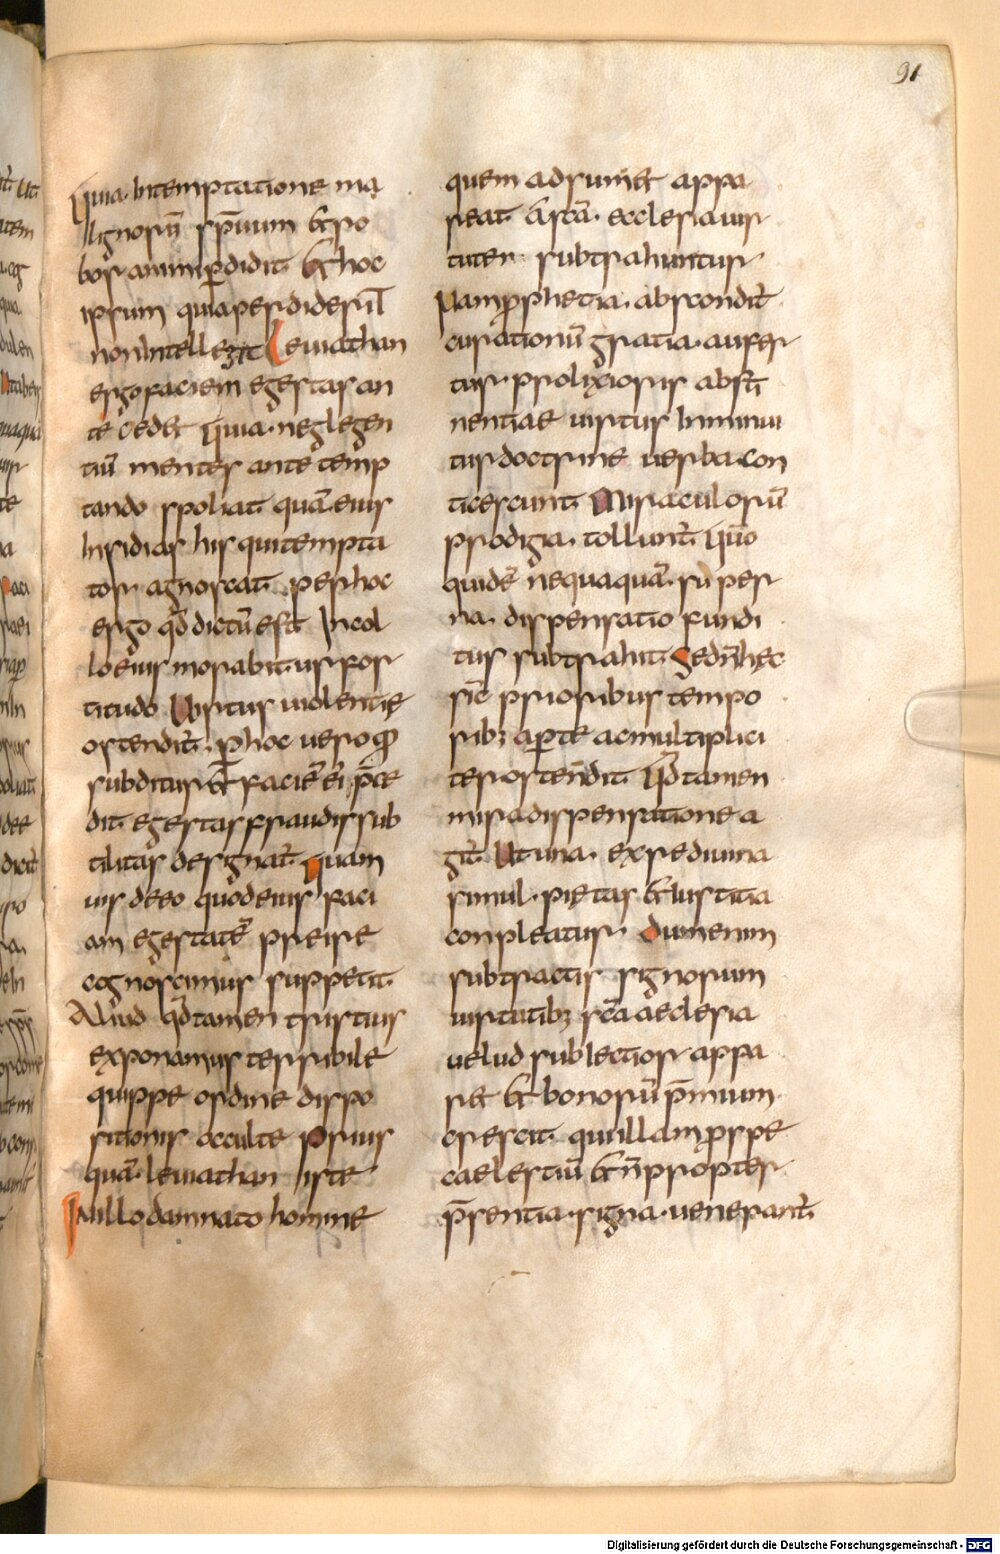 91
Quia. Intemptatione ma
lignorū sp̄uum & ro
bor animi ꝑdidit. & hoc
ipsum quia perdiderit
non Intellexit Leuiathan
ergo faciem egestas an
te cedet Quia. neglegen
tiū mentes ante temp
tando spoliat. quā. eius
Insidias his qui tempta
tor agnoscat. per hoc
ergo qd̄ dictū est Incol
lo eius morabitur for
titudo Virtus uiolentię
ostendit̄. ꝑ hoc uero qđ
subditur & faciē ei p̄ce
dit. egestas fraudis sub
tilitas designat̄. quam
uis de eo quod eius faci
am egestatē preire
cognoscimus suppetit.
Aliud qd̄ tamen tristius
exponamus terribile
quippe ordine dispo
sitionis occulte prius
quā. leuiathan iste
In illo damnato homine
quem adsum& appa
reat. a sc̄a. ecclesia uir
tutes subtrahuntur
Nam ꝓphetia. abscondit̄.
curationū gratia. aufer
tur. prolixiorus absti
nentiae uirtus Inminui
tur doctrine uerba con
ticescunt. Miraculorū
prodigia. tollunt̄. Quo
quidē nequaquā. super
na. dispensatio fundi
tus subtrahit. Sed n̄ hęc
sic̄ prioribus tempo
rib; aꝑte ac multiplici
ter ostendit. Qd̄ tamen
mira dispensatione a
git̄. Ut una. ex re diuina
simul. pietas & iustitia
conpleatur. Dum enim
subtractis signorum
uirtutib; sc̄a aeclesia
uelud sub lectior appa
r& & bonorū p̄mium.
crescit. qui illam ꝓ spe
caelestiū & n̄ propter
p̄sentia. signa. uenerant̄.
Digitalisierung gefördert durch die Deutsche Forschungsgemeinschaft - DFG